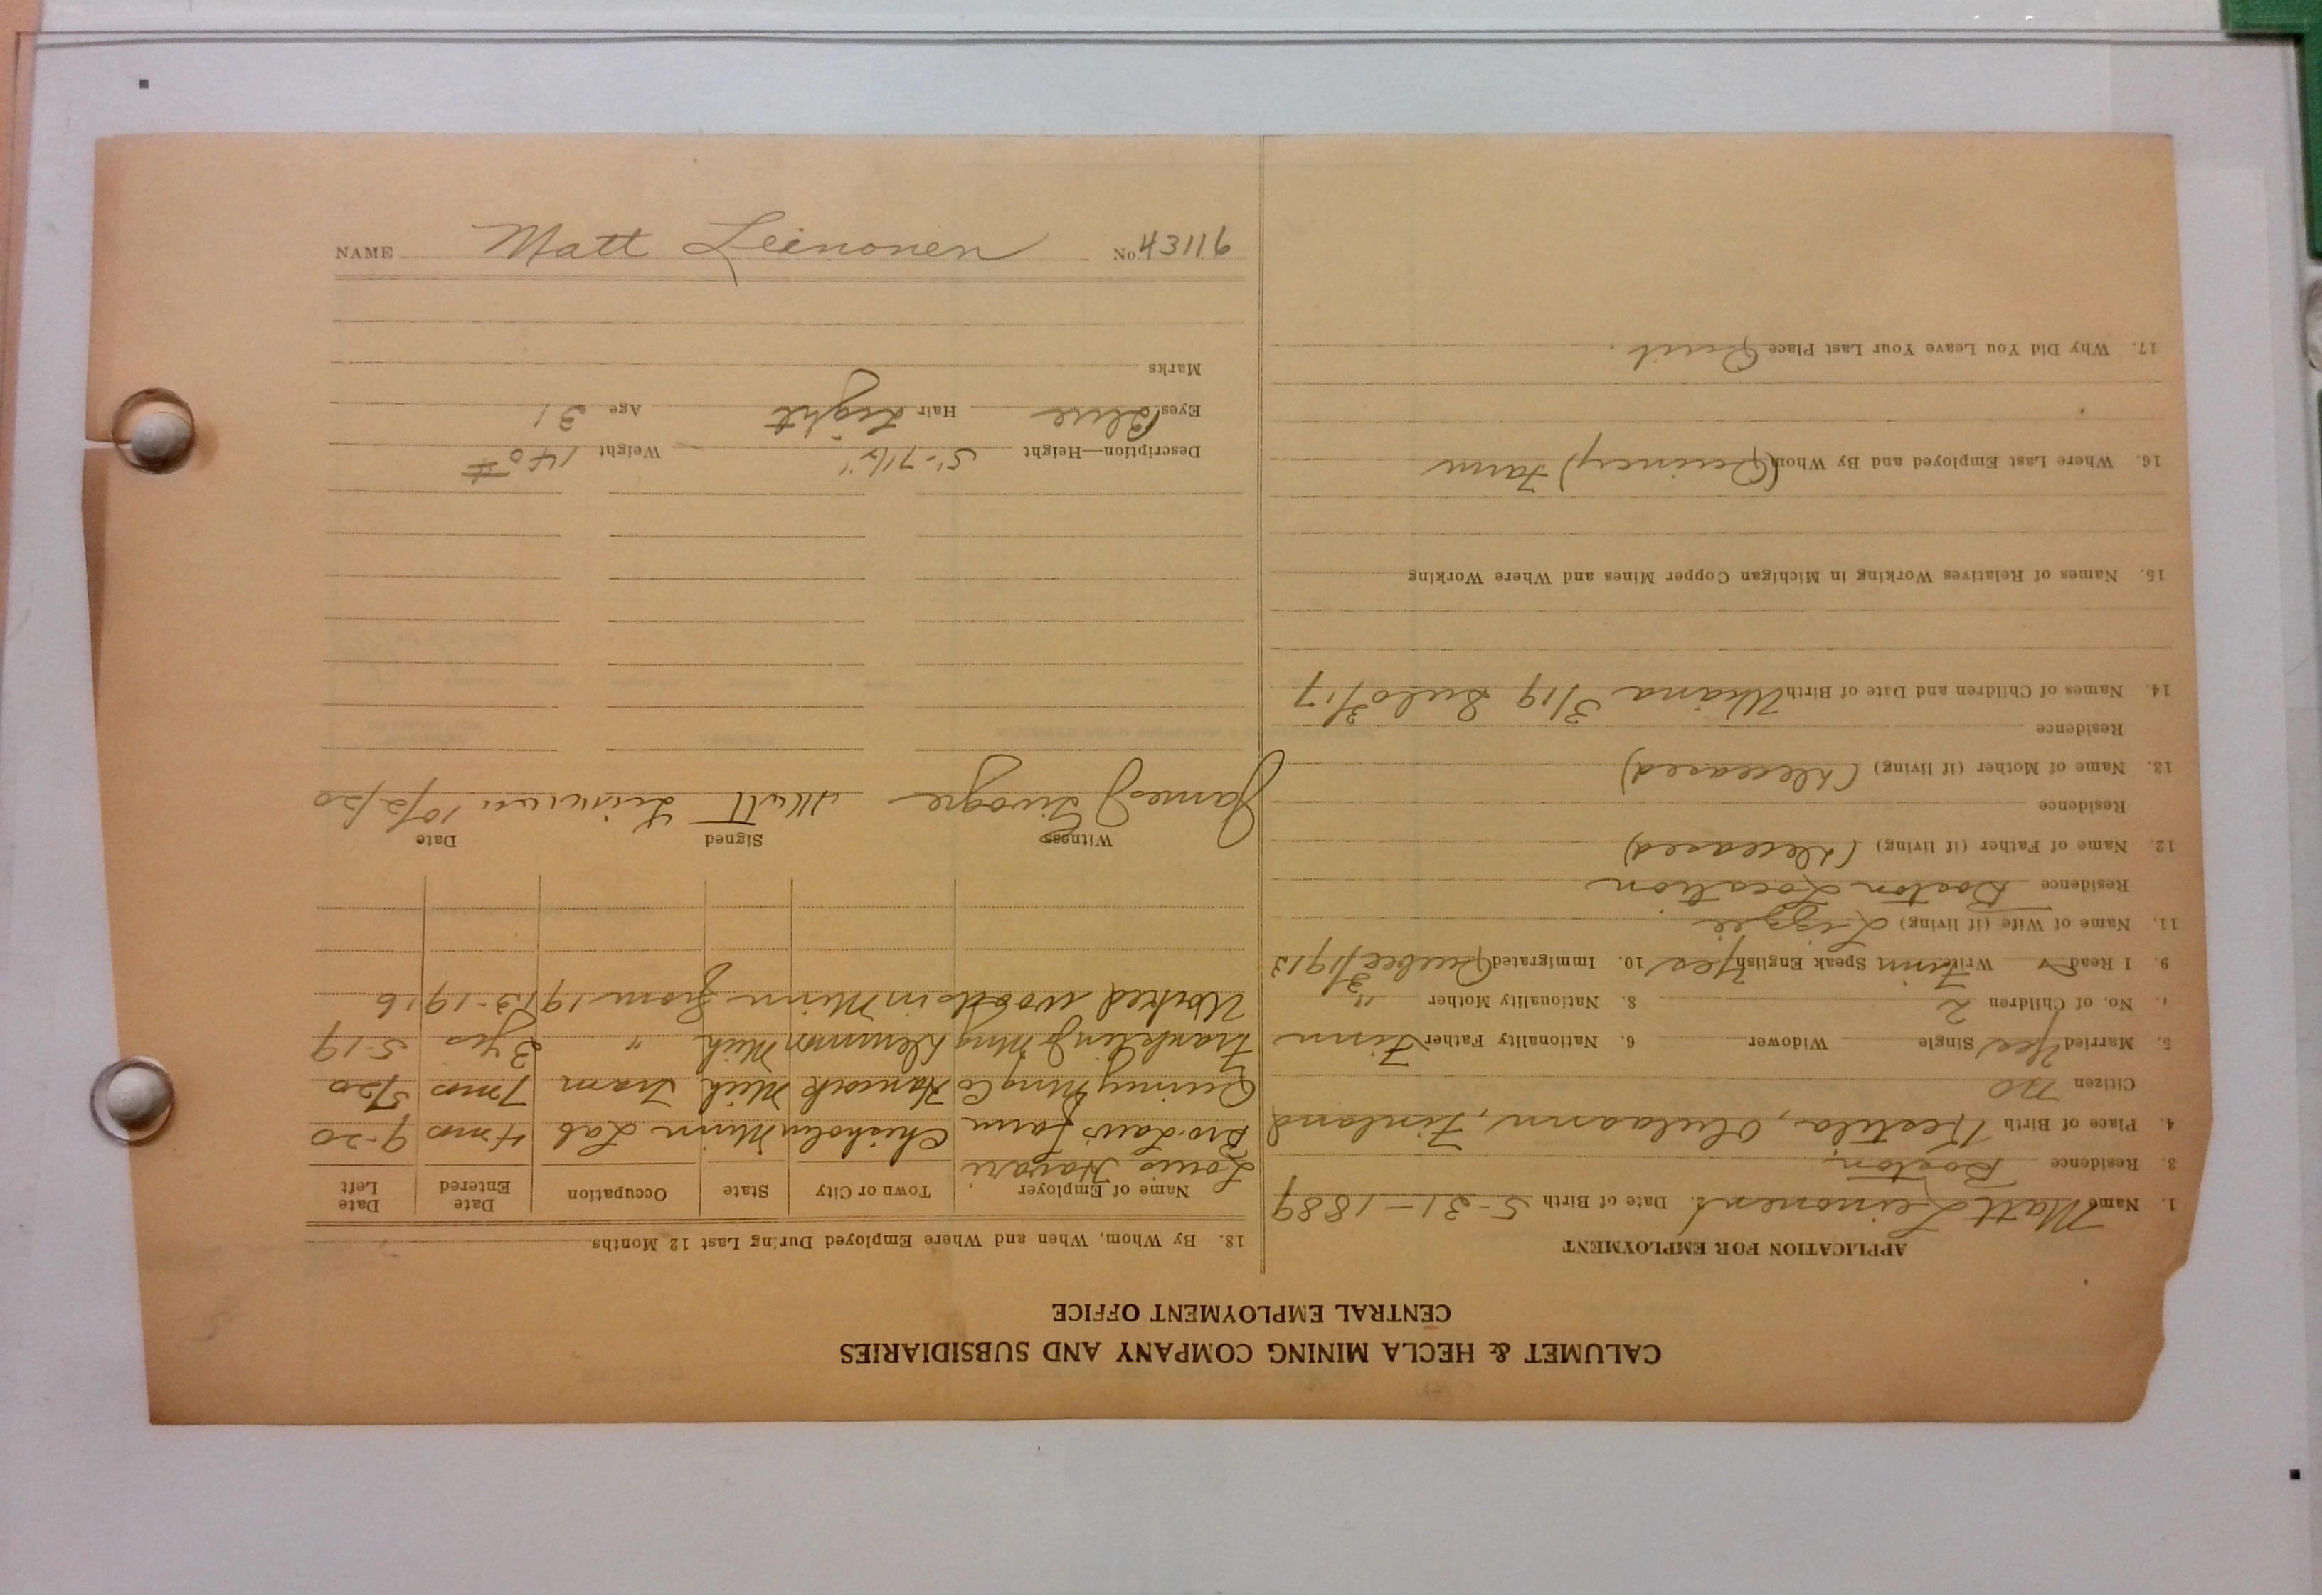 CALUMET & HECLA MINING COMPANY AND SUBSIDIARIES
CENTRAL EMPLOYMENT OFFICE
APPLICATION FOR EMPLOYMENT
1. Name Matt Leinonen 2. Date of Birth 5-31-1889
3. Residence Boston
4. Place of Birth Kestila, Finland
Citizen no
5. Married Yes Single Widower 6. Nationality Father Finn
7. No. of Children 2 8. Nationality Mother "
9. I Read ✓ Write Finn Speak English Yes 10. Immigrated Quebec 3/1913
11. Name of Wife (if living) Lizzie
Residence Boston Location
12. Name of Father (if living) (deceased)
Residence
13. Name of Mother (if living) (deceased)
Residence
14. Names of Children and Date of Birth 3/19 3/17
15. Names of Relatives Working in Michigan Copper Mines and Where Working
16. Where Last Employed and By Whom (Quincy) Farm
17. Why Did You Leave Your Last Place Quit.
18. By Whom, When and Where Employed During Last 12 Months
Name of Employer Town or City State Occupation Date Entered Date Left
Louis
Bro-Law's farm Chisholm Minn Lab 4 mos 9-20
Quincy Mng Co Hancock Mich Tram 7 mos 5/20
Franklin Mng Mich " 3 yrs 5-19
Worked woods in Minn from 1913-1916
Witness Signed Date
James Matt Leinonen 10/2/20
Description—Height 5'-7 1/2" Weight 140#
Eyes Blue Hair Light Age 31
Marks
NAME Matt Leinonen No. 43116